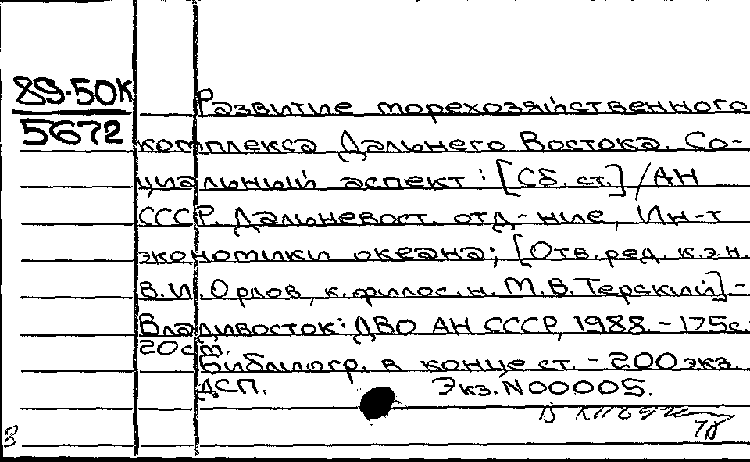 89-50К
5672
Развитие морехозяйственного
комплекса Дальнего Востока. Со-
циальный аспект: [Сб. ст.] / АН
СССР. Дальневост. отд-ние, Ин-т
экономики океана; [Отв. ред. к.э.н.
В.И. Орлов, к. филос. н. М.В. Терский] -
Владивосток: ДВО АН СССР, 1988. - 175с.
20 см.
Библиогр. в конце ст. - 200 экз.
ДСП. Экз. N00005.
В